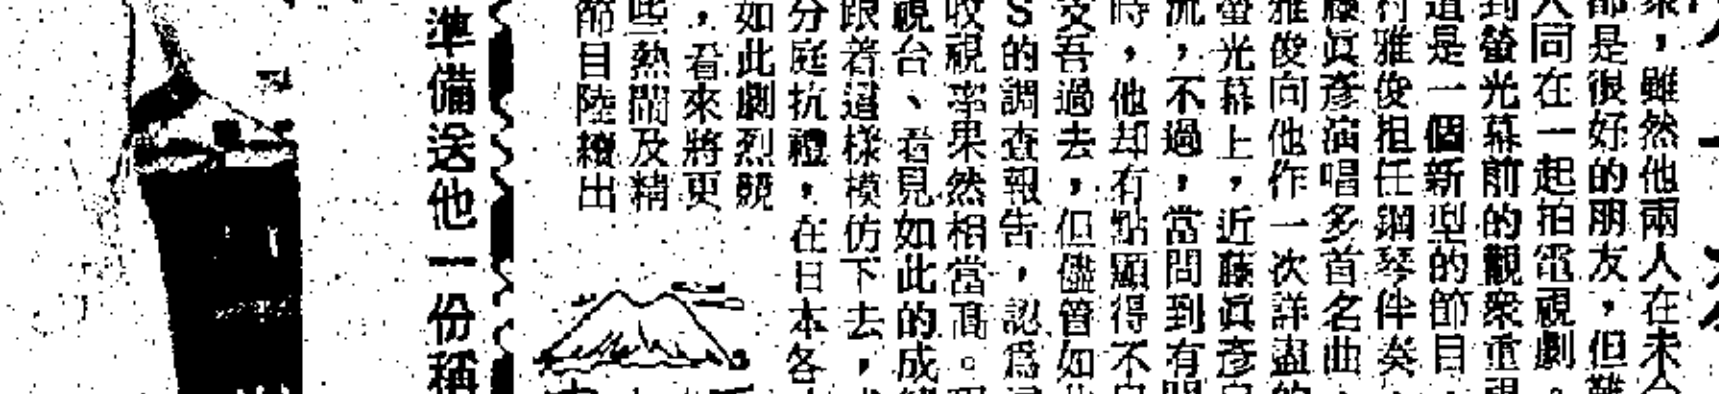 衆，雖然他兩人在未
都是很好的朋友，但難
人同在一起拍電視劇。
到螢光幕前的觀衆重視
道是一個新型的節目，
村雅俊担任鋼琴伴奏，
藤眞彥演唱多首名曲，
雅俊向他作一次詳盡的
螢光幕上，近藤眞彥
流，不過，當問到有關
時，他却有點顯得不
支吾過去，但儘管如此
S的調查報告，認爲
收視率果然相當高。
視台、看見如此的成績
跟着這樣模仿下去，
分庭抗禮，在日本各
如此劇烈競
，看來將更
些熱鬧及精
節目陸續出
準備送他一份稱